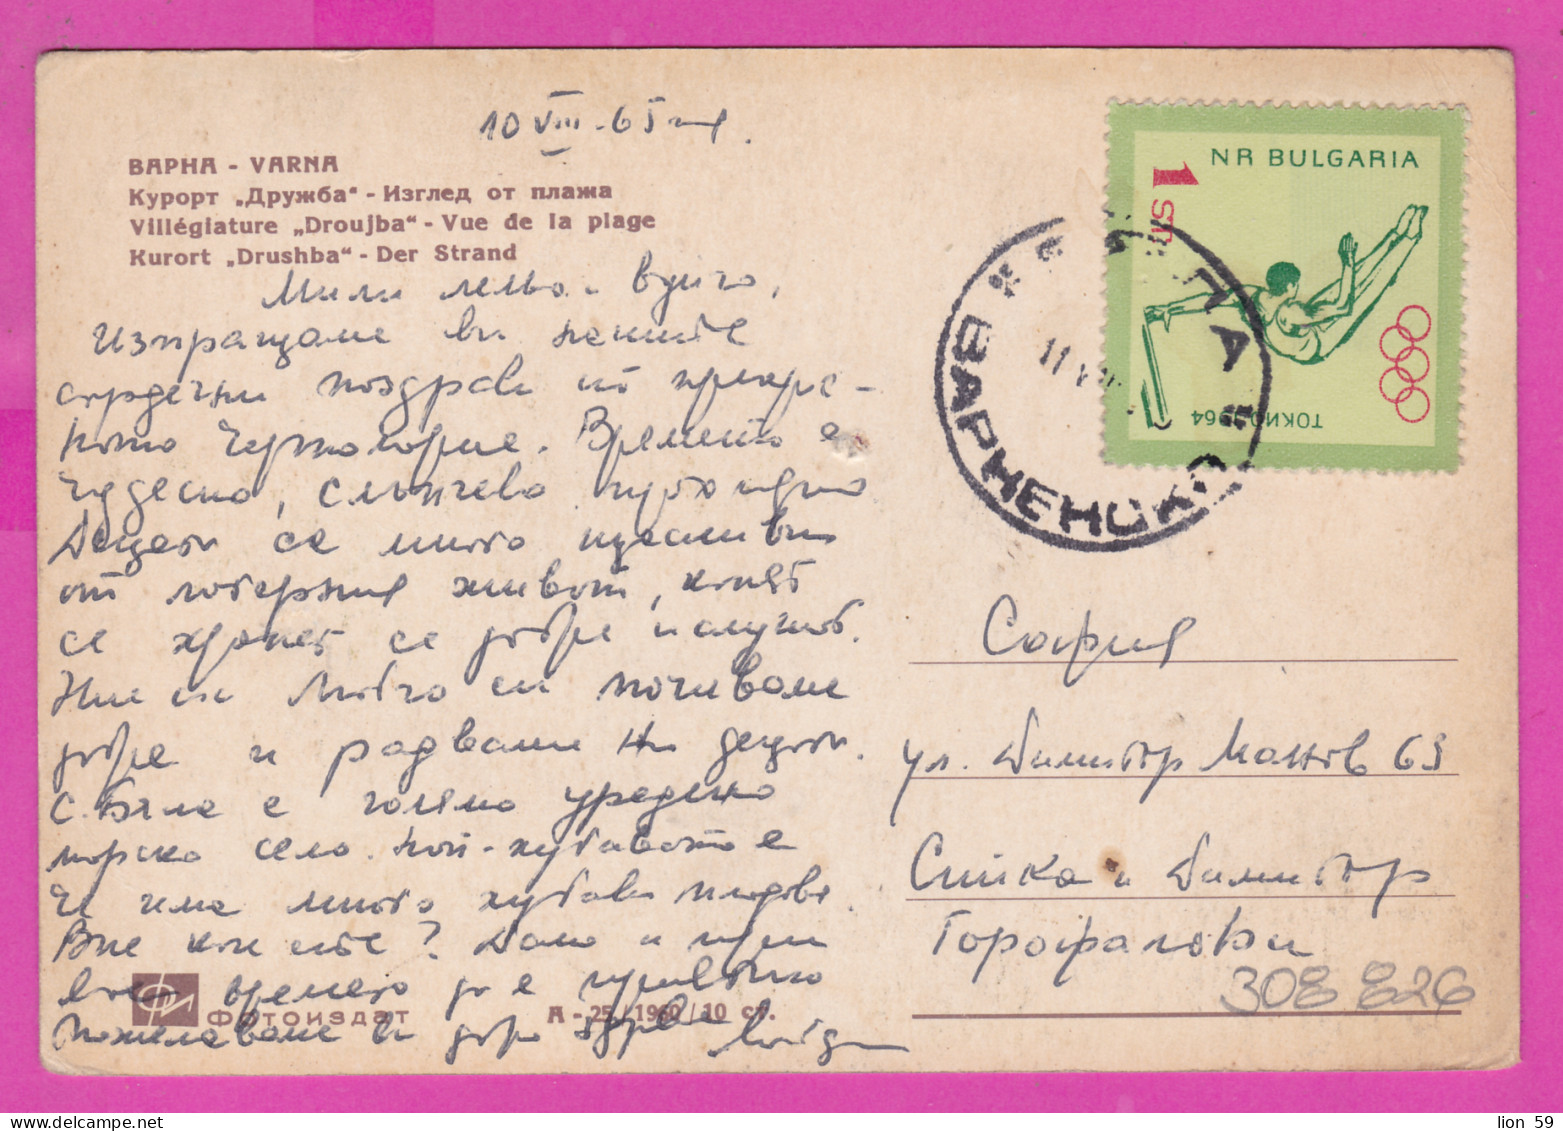 10 VIII. 65
ВАРНА - VARNA
Курорт „Дружба“ - Изглед от плажа
Villégiature „Droujba“ - Vue de la plage
Kurort „Drushba“ - Der Strand
Мили лельо и вуйчо,
Изпращаме ви нашите
сърдечни поздрави от прекрас-
ното Черноморие. Времето е
чудесно, слънчево прохладно
Децата са много щастливи
от лагерния живот, които
се хранят се добре и служат.
Ние си почиваме
добре и радваме на децата.
с. Бяла е голямо уредено
морско село. Най-хубавото е
че има много хубави плодове.
Вие как сте? Дано и при
вас времето да е приятно
Пожелаваме ви добро здраве
ФОТОИЗДАТ
А - 25 / 1960 / 10 ст.
NR BULGARIA
1 st
ТОКИО 1964
БЯЛА
ВАРНЕНСКО
11 VIII
София
ул. Димитър Манов 63
Сийка и Димитър
Горофалови
308 826
lion 59